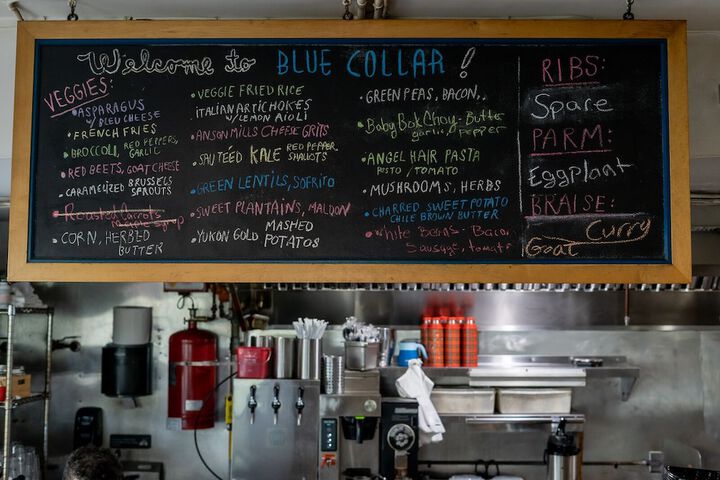 Welcome to BLUE COLLAR!
VEGGIES:
• ASPARAGUS
W/ BLEU CHEESE
• FRENCH FRIES
• BROCCOLI, RED PEPPERS,
GARLIC
• RED BEETS, GOAT CHEESE
• CARAMELIZED BRUSSELS
SPROUTS
• Roasted Carrots
Maple Syrup
• CORN, HERBED
BUTTER
• VEGGIE FRIED RICE
ITALIAN ARTICHOKES
W/ LEMON AIOLI
• ANSON MILLS CHEESE GRITS
• SAUTÉED KALE RED PEPPER
SHALLOTS
• GREEN LENTILS, SOFRITO
• SWEET PLANTAINS, MALDON
• YUKON GOLD MASHED
POTATOS
• GREEN PEAS, BACON,
• Baby Bok Choy - Butter
garlic, pepper
• ANGEL HAIR PASTA
PESTO / TOMATO
• MUSHROOMS, HERBS
• CHARRED SWEET POTATO
CHILE BROWN BUTTER
• White Beans - Bacon
Sausage, tomato
RIBS:
Spare
PARM:
Eggplant
BRAISE:
Curry
Goat